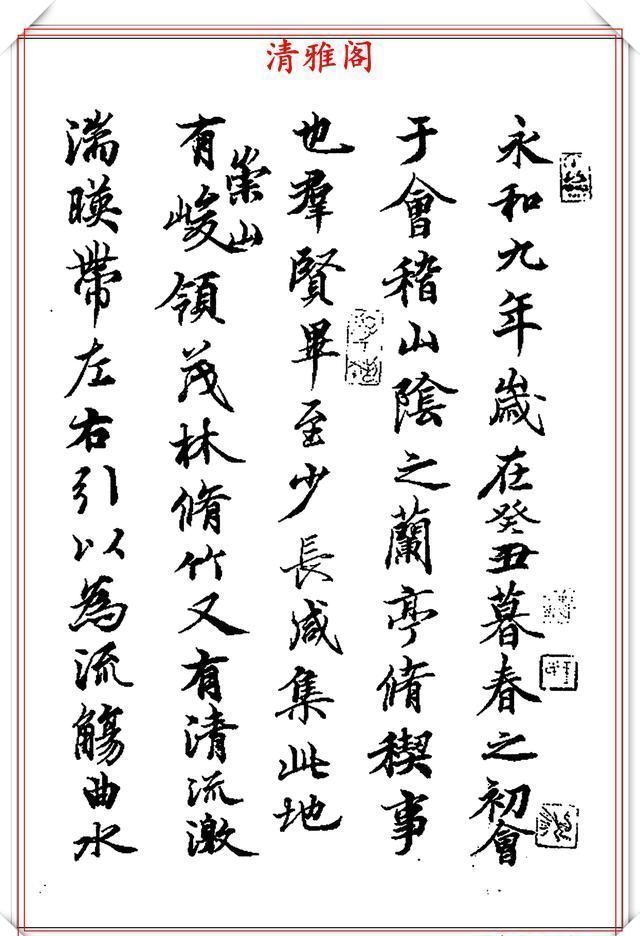 清雅阁
永和九年歲在癸丑暮春之初會
于會稽山陰之蘭亭脩稧事
也羣賢畢至少長咸集此地
有崇山峻領茂林脩竹又有清流激
湍暎帶左右引以為流觴曲水